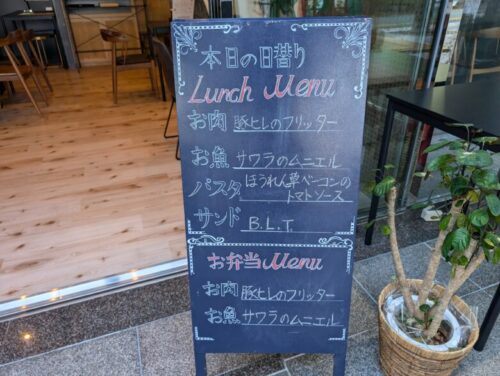 本日の日替り
Lunch Menu
お肉 豚ヒレのフリッター
お魚 サワラのムニエル
パスタ ほうれん草ベーコンの
トマトソース
サンド B.L.T.
お弁当 Menu
お肉 豚ヒレのフリッター
お魚 サワラのムニエル